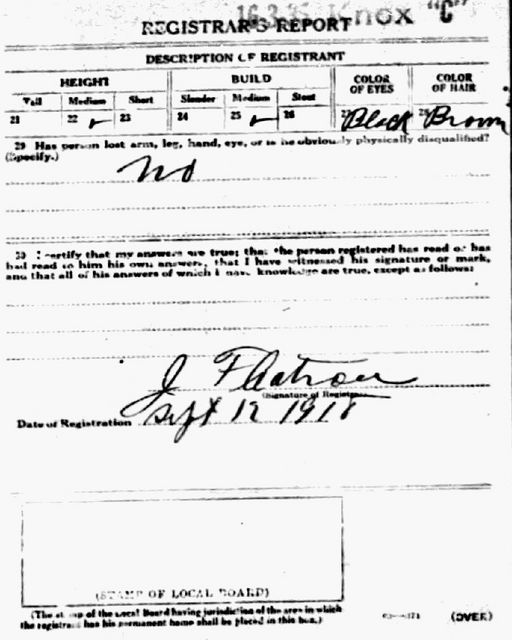 16.3.35. Knox "C"
REGISTRAR'S REPORT
DESCRIPTION OF REGISTRANT
HEIGHT BUILD COLOR OF EYES COLOR OF HAIR
Tall Medium Short Slender Medium Stout
21 22 ✓ 23 24 25 ✓ 26 27 Black 28 Brown
29 Has person lost arm, leg, hand, eye, or is he obviously physically disqualified?
(Specify.)
No
30 I certify that my answers are true; that the person registered has read or has
had read to him his own answers; that I have witnessed his signature or mark,
and that all of his answers of which I have knowledge are true, except as follows:
J
(Signature of Registrar)
Date of Registration Sept 12 1918
(STAMP OF LOCAL BOARD)
(The stamp of the Local Board having jurisdiction of the area in which
the registrant has his permanent home shall be placed in this box.)
(OVER)